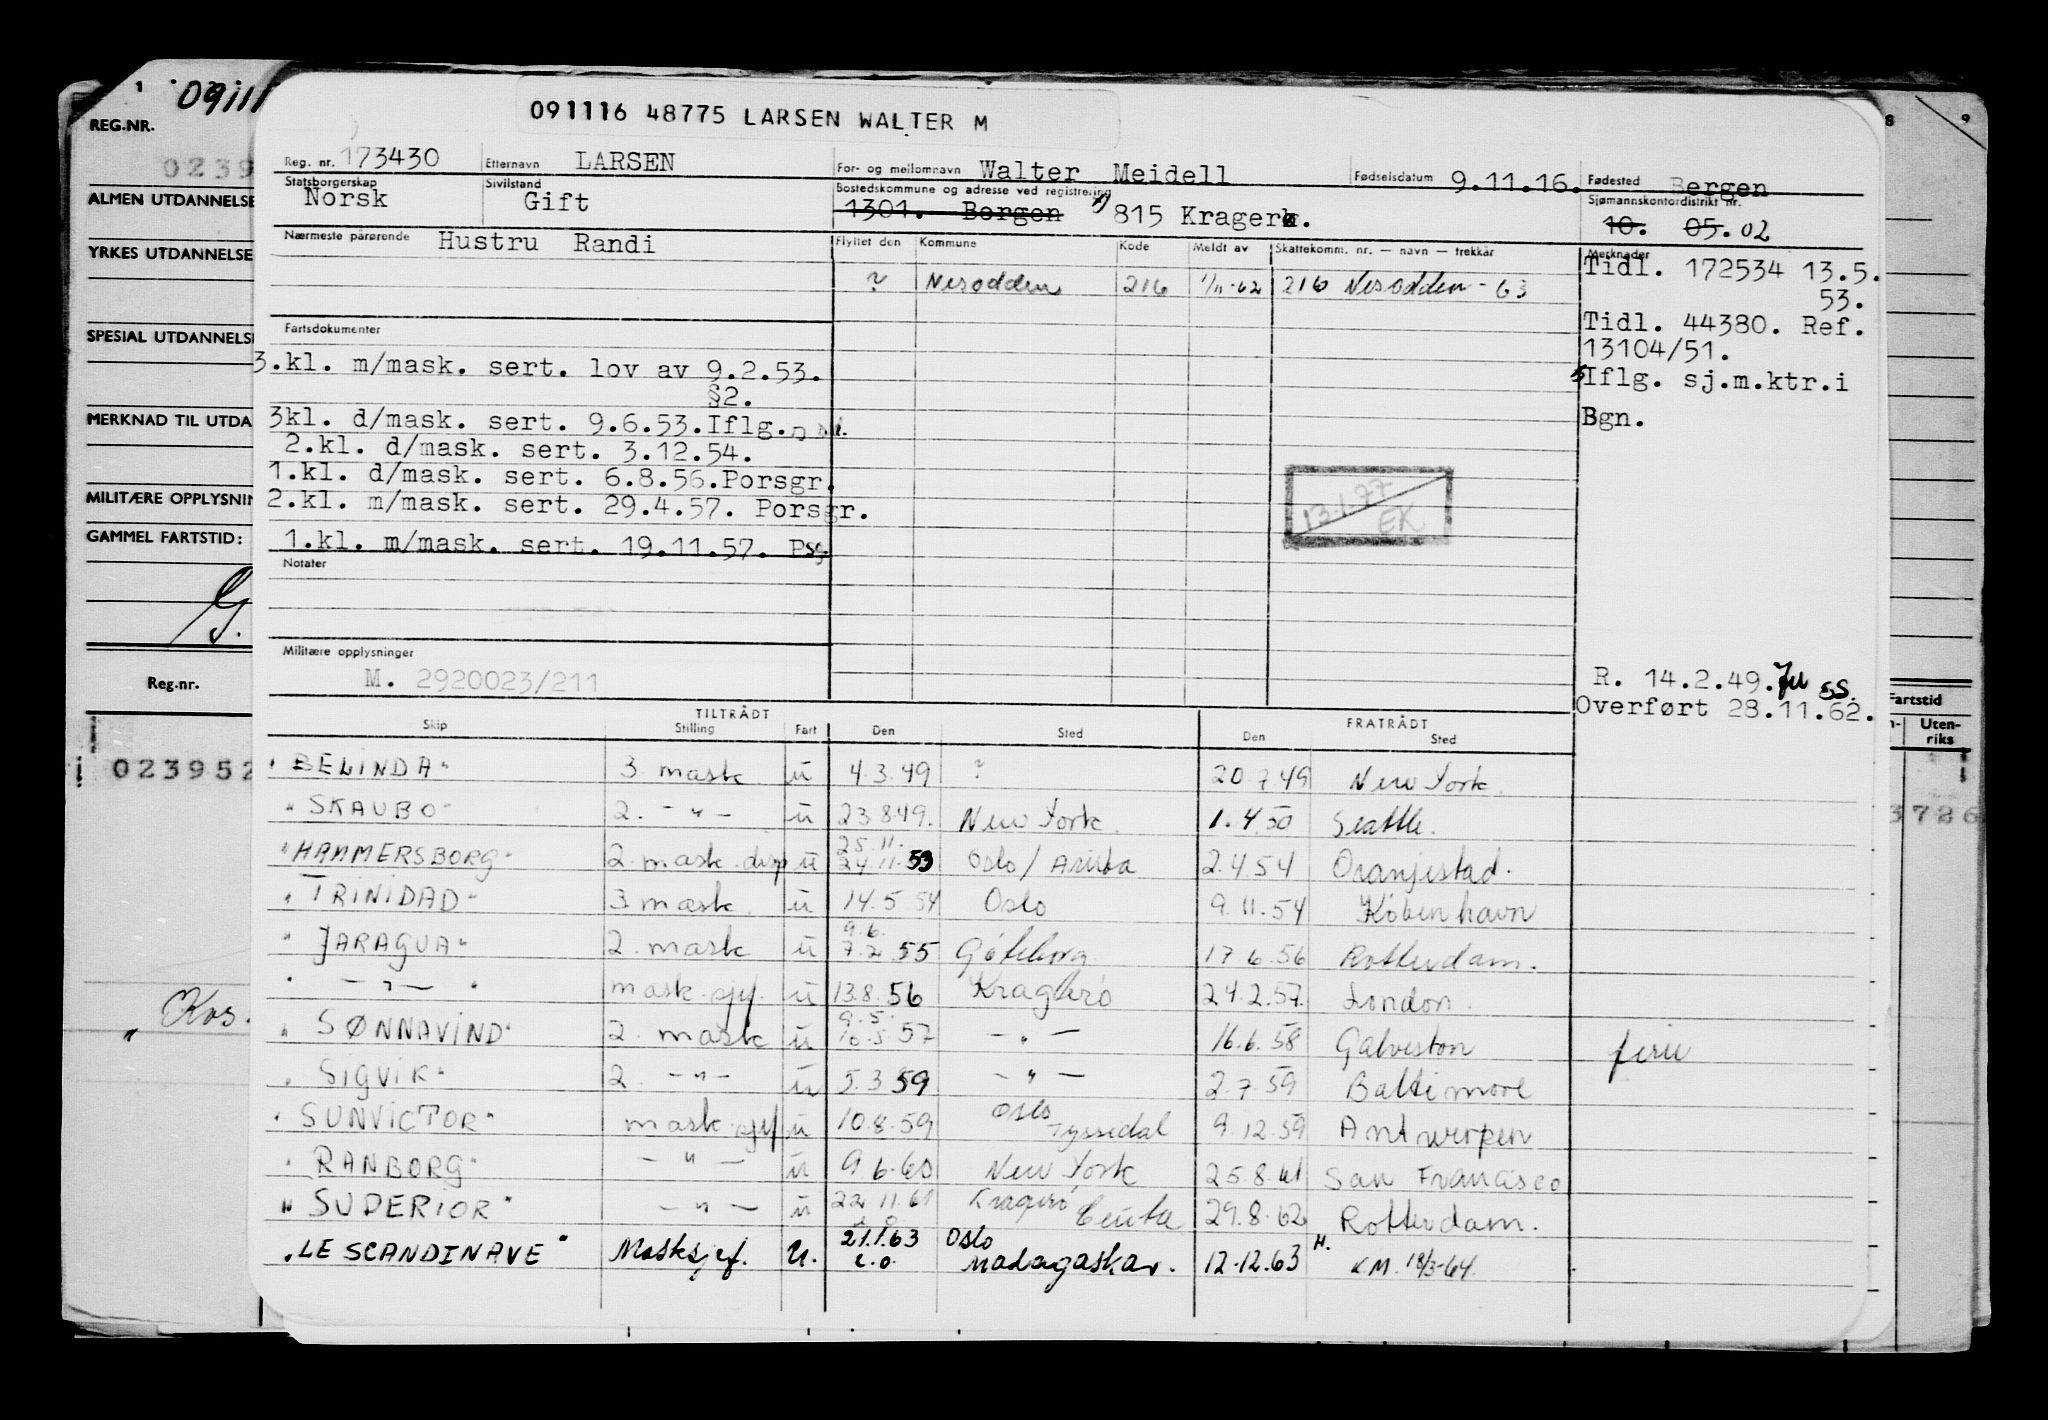 1 09111
REG.NR.
0239
ALMEN UTDANNELSE
YRKES UTDANNELSE
SPESIAL UTDANNELSE
MERKNAD TIL UTDA
MILITÆRE OPPLYSNIN
GAMMEL FARTSTID:
G.
Reg.nr.
023952
" Kos.
8 9
Fartstid
n- Uten-
riks
3726
091116 48775 LARSEN WALTER M
Reg. nr. 173430 Etternavn LARSEN For- og mellomnavn Walter Meidell Fødselsdatum 9.11.16. Fødested Bergen
Statsborgerskap Norsk Sivilstand Gift Bostedskommune og adresse ved registrering 1301. Bergen 815 Kragerø. Sjømannskontordistrikt nr. 10. 05. 02
Nærmeste pårørende Hustru Randi
Flyttet den Kommune Kode Meldt av Skattekomm. nr. — navn — trekkår Merknader
? Nesodden 216 1/11-62 216 Nesodden - 63
Tidl. 172534 13.5.
53.
Tidl. 44380. Ref.
13104/51.
Iflg. sj.m.ktr.i
Bgn.
Fartsdokumenter
3.kl. m/mask. sert. lov av 9.2.53.
§2.
3kl. d/mask. sert. 9.6.53.Iflg.
2.kl. d/mask. sert. 3.12.54.
1.kl. d/mask. sert. 6.8.56.Porsgr.
2.kl. m/mask. sert. 29.4.57. Porsgr.
1.kl. m/mask. sert. 19.11.57. Psg.
13.1.77
EK
Notater
Militære opplysninger
M. 2920023/211
R. 14.2.49. 55.
Overført 28.11.62.
TILTRÅDT FRATRÅDT
Skip Stilling Fart Den Sted Den Sted
"BELINDA" 3 mask. u 4.3.49 ? 20.7.49 New York.
"SKAUBO" 2. - " - u 23.8.49. New York. 1.4.50 Seattle.
25.11.
"HAMMERSBORG" 2. mask. disp u 24.11.53 Oslo / Aruba 2.4.54 Oranjestad.
"TRINIDAD" 3 mask. u 14.5.54 Oslo 9.11.54 København
9.6.
"JARAGUA" 2. mask u 7.2.55 Göteborg 17.6.56 Rotterdam.
" — " — " mask.sjef. u 13.8.56 Kragerø 24.2.57. London.
9.5.
"SØNNAVIND" 2. mask u 10.5.57 — " — 16.6.58 Galveston ferie
"SIGVIK" 2. - " - u 5.3.59 — " — 2.7.59 Baltimore
"SUNVICTOR" mask.sjef u 10.8.59 Oslo Tyssedal 9.12.59 Antwerpen
"RANBORG" — " — u 9.6.60 New York 25.8.61 San Francisco
"SUDERIOR" — " — u 22.11.61 Kragerø Ceuta 29.8.62 Rotterdam.
"LE SCANDINAVE" Masksjef. u. 21.1.63 Oslo Madagaskar. 12.12.63 H. KM. 18/3-64.